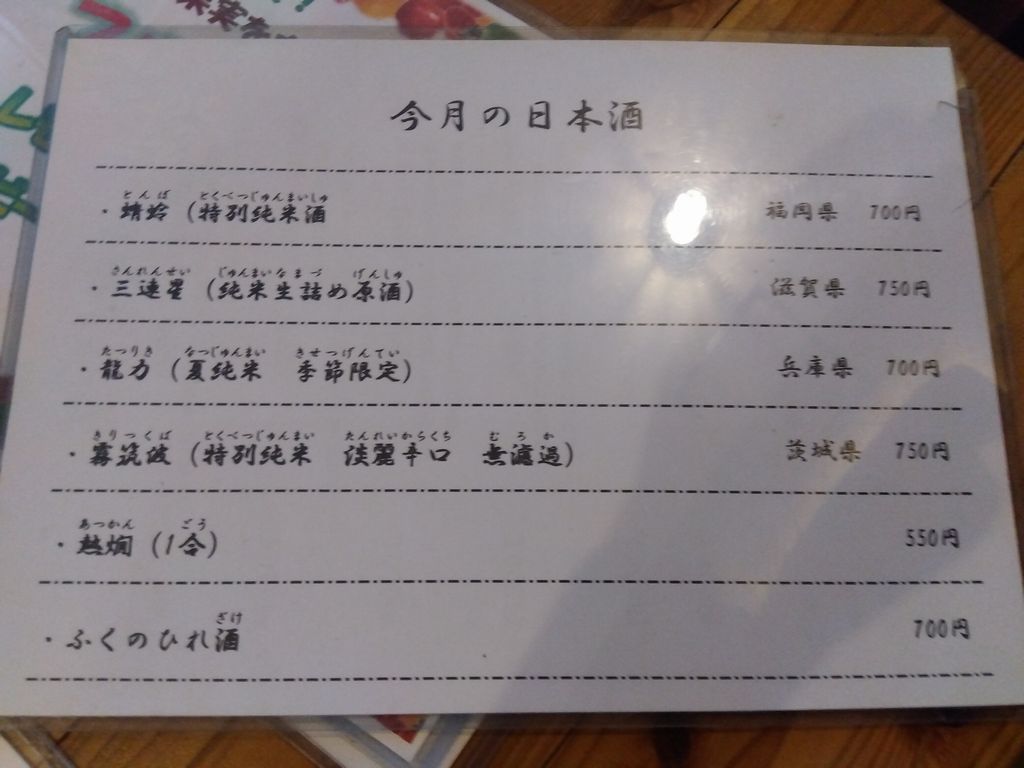 今月の日本酒
とんぼ とくべつじゅんまいしゅ
・蜻蛉（特別純米酒 福岡県 700円
さんれんせい じゅんまいなまづ げんしゅ
・三連星（純米生詰め原酒） 滋賀県 750円
たつりき なつじゅんまい きせつげんてい
・龍力（夏純米 季節限定） 兵庫県 700円
きりつくば とくべつじゅんまい たんれいからくち むろか
・霧筑波（特別純米 淡麗辛口 無濾過） 茨城県 750円
あつかん ごう
・熱燗（1合） 550円
ざけ
・ふくのひれ酒 700円